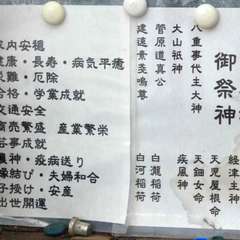 御祭神
経津主神
天児屋根命
八重事代主大神
天鈿女命
大山祇神
疾風神
菅原道真公
白瀧稲荷
建速素戔嗚尊
白河稲荷
内安穏
健康・長寿・病気平癒
災難・厄除
合格・学業成就
交通安全
商売繁盛 産業繁栄
事成就
神・疫病送り
縁結び・夫婦和合
子授け・安産
出世開運